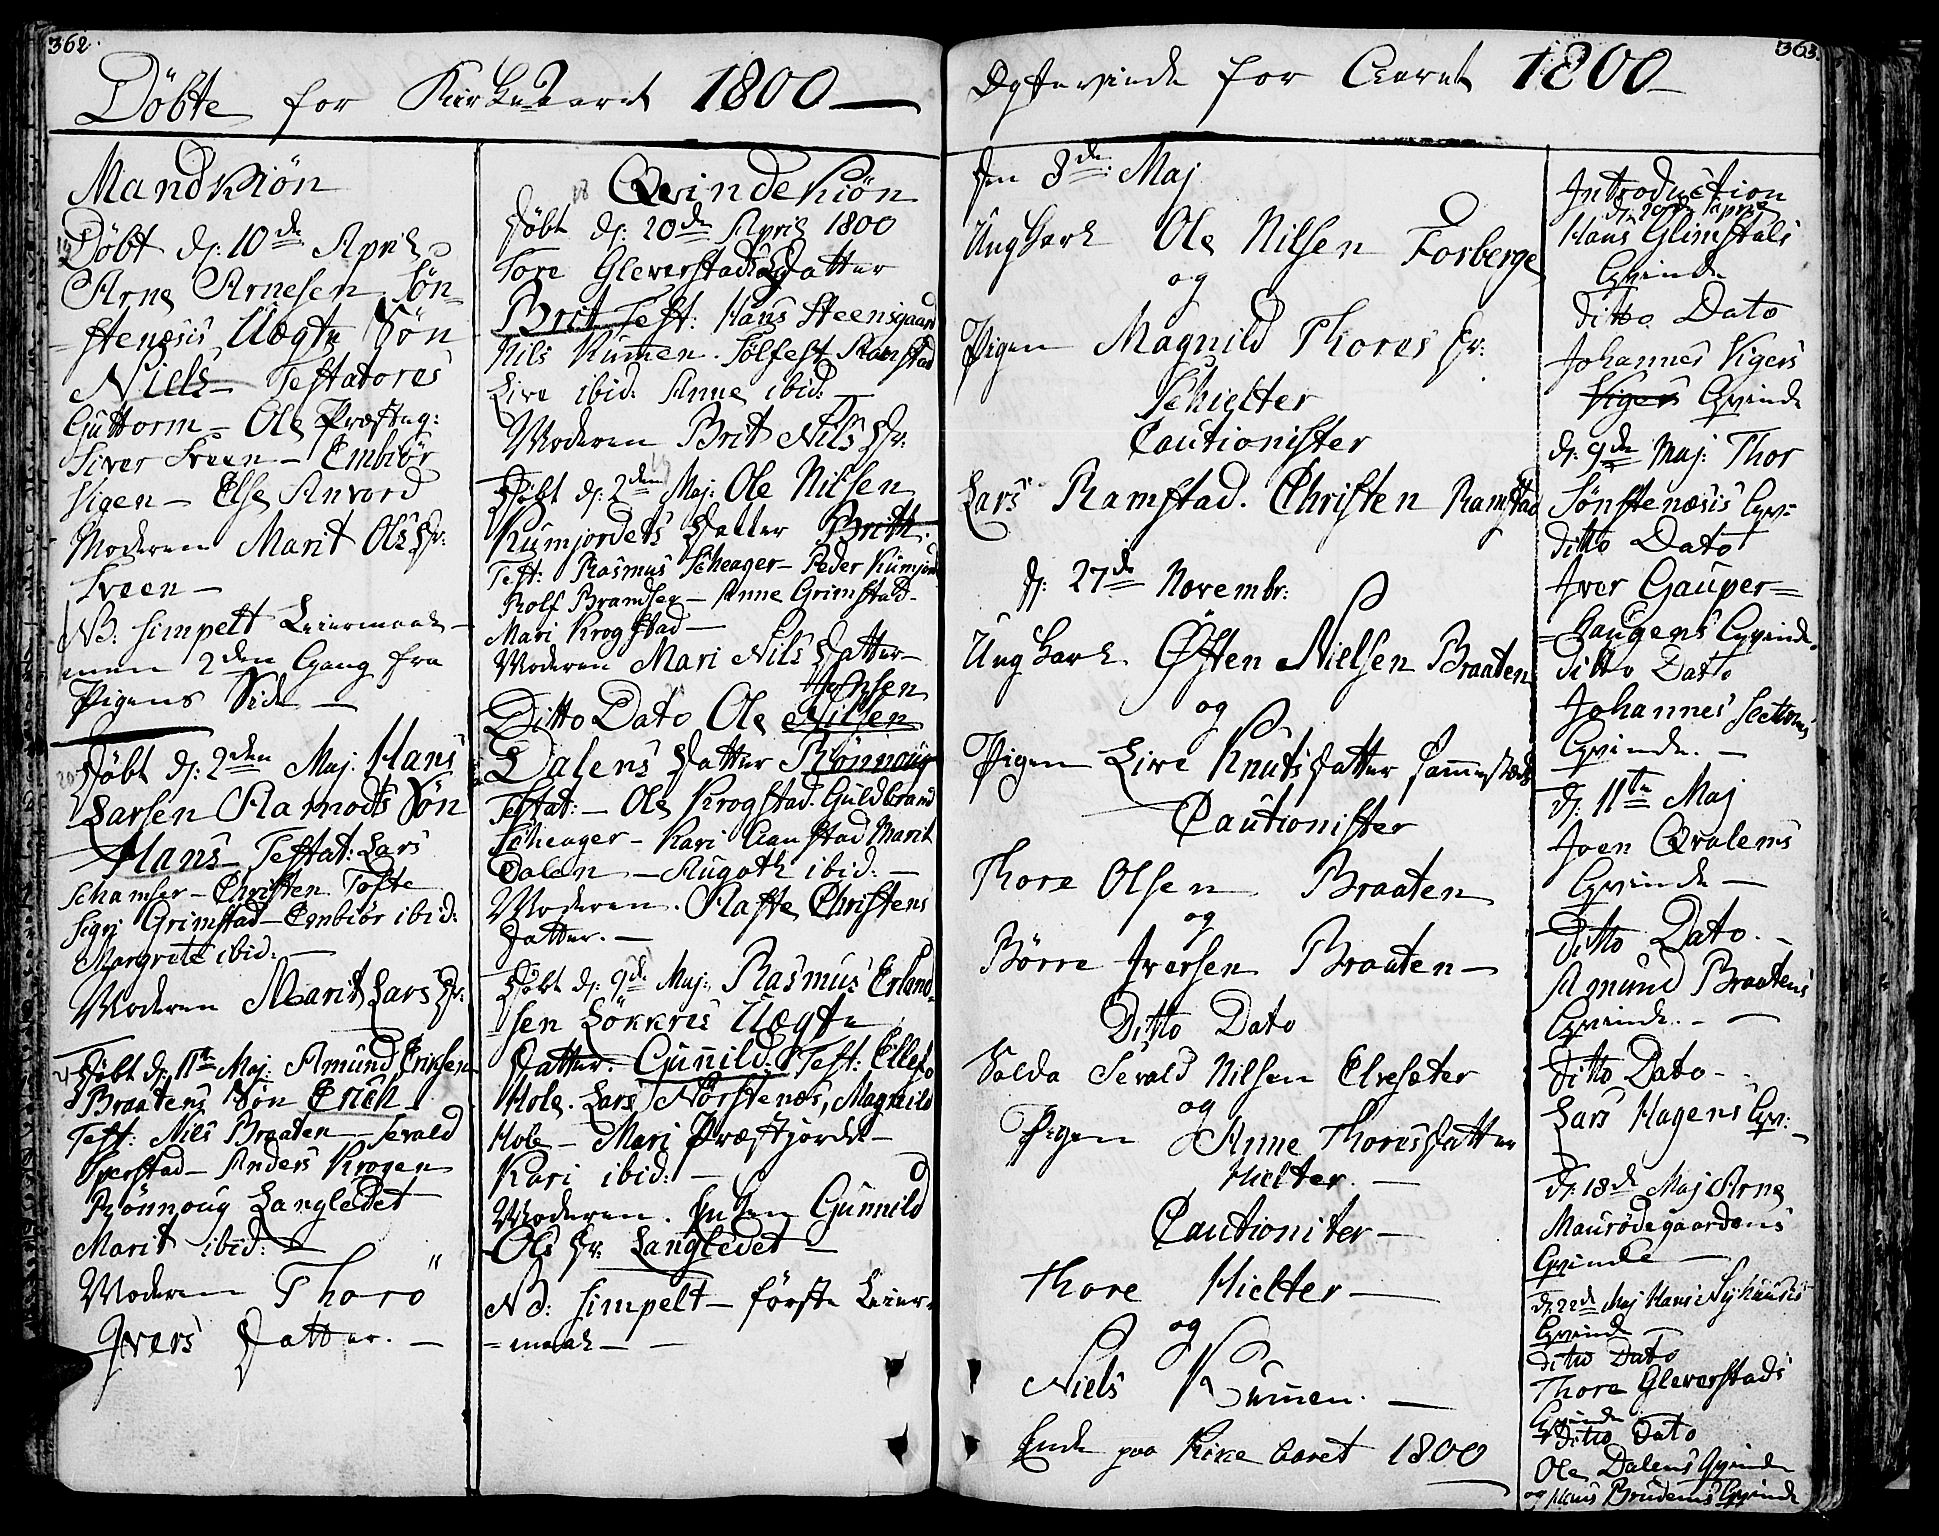 362.
Döbte for Kirke Aaret 1800
Mandkiön
19
Döbt d: 10de April
Arne Arnesen Sön-
stenæsis Uægte Sön
Niels - Testatores
Guttorm - Ole Præsteg:
Siver Sveen - Embiör
Vigen - Else Anvord
Moderen Marit Ols Dr:
Sveen -
NB: simpelt Leiermaal -
men 2den Gang fra
Pigens Side -
20
Döbt d: 2den Maj: Hans
Larsen Ramods Sön
Hans - Testat: Lars
Schamser - Christen Tofte
Sigri Grimstad - Embiör ibid:
Margrete ibid: -
Moderen Marit Lars Dr:
21
Döbt d: 11te Maj: Amund Eriksen
Braatens Sön Erich
Test: Nils Braaten - Sevald
Sperstad - Anders Krogen
Rönnoug Langledet
Marit ibid: -
Moderen Thoro
Ivers Datter. -
18 Qvindekiön
Döbt d: 20de April 1800
Tore Gleverstads Datter
Brit Test: Hans Steensgaard
Nils Kummen. Tolfest Ramstad
Live ibid: Anne ibid: -
Moderen Brit Nils Dr:
19
Döbt d: 2den Maj: Ole Nilsen
Kumjordets Datter Britt.
Test: Rasmus Scheager - Peder Kumjord
Rolf Brandser - Anne Grimstad -
Mari Krogstad -
Moderen Mari Nils Datter -
Johsen
Ditto Dato Ole Nilsen
Dalens Datter Rönnoug
Testat: - Ole Krogstad. Guldbrand
Scheager - Kari Aanstad Marit
Dalen - Augoth ibid: -
Moderen. Raste Christens
Datter. -
Döbt d: 9de Maj: Rasmus Erland-
sen Lökkris Uægte
Datter. Gunnild. Test: Ellef
Hole. Lars Nörstenæs, Magnild
Hole - Mari Præstjordet -
Kari ibid: -
Moderen. Enken Gunnild
Ols Dr: Langledet -
NB: simpelt - förste Leier-
=maal - -
363.
Ægtevinde for Aaret 1800 -
Den 8de: Maj
Ungkarl Ole Nilsen Forberge
og
Pigen Magnild Thores Dr:
Schielter
Cautionister
Lars Ramstad. Christen Ramstad
d: 27de Novembr:
Ungkarl. Østen Nielsen Braaten
og
Pigen Live Knuts Datter sammesteds
Cautionister
Thore Olsen Braaten
og
Börre Iversen Braaten -
Ditto Dato
Solda Sevald Nilsen Elvesæter
og
Pigen Anne Thores Datter
Hielter. -
Cautioniter -
Thore Hielter -
og
Niels Kummen. -
Ende paa Kirke Aaret 1800
Introduction
d: 20de April
Hans Glimsdals
Qvinde
Ditto Dato
Johannes Vigers
Vigers Qvinde
d: 9de Maj: Thor
Sönstenæsis Qvi:
Ditto Dato
Iver Gauper=
=haugens Qvinde.
Ditto Dato
Johannes
Qvinde. -
d: 11te Maj
Joen Qvalens
Qvinde -
Ditto Dato. -
Amund Braatens
Qvinde. - -
Ditto Dato - -
Lars Hagens Qv: -
d: 18de Maj Arne
Maurödegaardens
Qvinde -
d: 22de Maj Hans Nyhuusis
Qvinde -
Ditto Dato
Thore Gleverstads
Qvinde -
Ditto Dato
Ole Dalens Qvinde
og Hans Brudens Qvinde